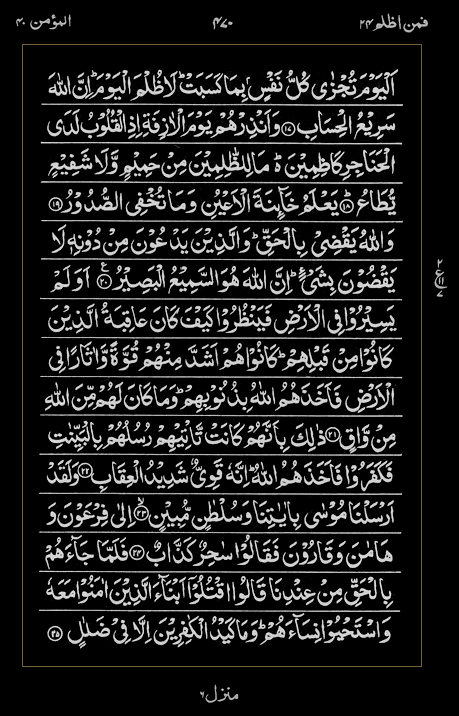 فمن اظلم ۲۴
۴۷۰
المؤمن ۴۰
اَلْيَوْمَ تُجْزٰى كُلُّ نَفْسٍۭ بِمَا كَسَبَتْ ؕ لَا ظُلْمَ الْيَوْمَ ؕ اِنَّ اللّٰهَ
سَرِيْعُ الْحِسَابِ ﴿۱۷﴾ وَاَنْذِرْهُمْ يَوْمَ الْاٰزِفَةِ اِذِ الْقُلُوْبُ لَدَى
الْحَنَاجِرِ كَاظِمِيْنَ ؕ۬ مَا لِلظّٰلِمِيْنَ مِنْ حَمِيْمٍ وَّلَا شَفِيْعٍ
يُّطَاعُ ؕ ﴿۱۸﴾ يَعْلَمُ خَآئِنَةَ الْاَعْيُنِ وَمَا تُخْفِى الصُّدُوْرُ ﴿۱۹﴾
وَاللّٰهُ يَقْضِىْ بِالْحَقِّ ؕ وَالَّذِيْنَ يَدْعُوْنَ مِنْ دُوْنِهٖ لَا
يَقْضُوْنَ بِشَىْءٍ ؕ اِنَّ اللّٰهَ هُوَ السَّمِيْعُ الْبَصِيْرُ ﴿۲۰﴾ اَوَلَمْ
۲ ع ۱۱ ۷
يَسِيْرُوْا فِى الْاَرْضِ فَيَنْظُرُوْا كَيْفَ كَانَ عَاقِبَةُ الَّذِيْنَ
كَانُوْا مِنْ قَبْلِهِمْ ؕ كَانُوْا هُمْ اَشَدَّ مِنْهُمْ قُوَّةً وَّاٰثَارًا فِى
الْاَرْضِ فَاَخَذَهُمُ اللّٰهُ بِذُنُوْبِهِمْ ؕ وَمَا كَانَ لَهُمْ مِّنَ اللّٰهِ
مِنْ وَّاقٍ ﴿۲۱﴾ ذٰلِكَ بِاَنَّهُمْ كَانَتْ تَّاْتِيْهِمْ رُسُلُهُمْ بِالْبَيِّنٰتِ
فَكَفَرُوْا فَاَخَذَهُمُ اللّٰهُ ؕ اِنَّهٗ قَوِىٌّ شَدِيْدُ الْعِقَابِ ﴿۲۲﴾ وَلَقَدْ
اَرْسَلْنَا مُوْسٰى بِاٰيٰتِنَا وَسُلْطٰنٍ مُّبِيْنٍ ۙ ﴿۲۳﴾ اِلٰى فِرْعَوْنَ وَ
هَامٰنَ وَقَارُوْنَ فَقَالُوْا سٰحِرٌ كَذَّابٌ ﴿۲۴﴾ فَلَمَّا جَآءَهُمْ
بِالْحَقِّ مِنْ عِنْدِنَا قَالُوا اقْتُلُوْۤا اَبْنَآءَ الَّذِيْنَ اٰمَنُوْا مَعَهٗ
وَاسْتَحْيُوْا نِسَآءَهُمْ ؕ وَمَا كَيْدُ الْكٰفِرِيْنَ اِلَّا فِىْ ضَلٰلٍ ﴿۲۵﴾
منزل ۶